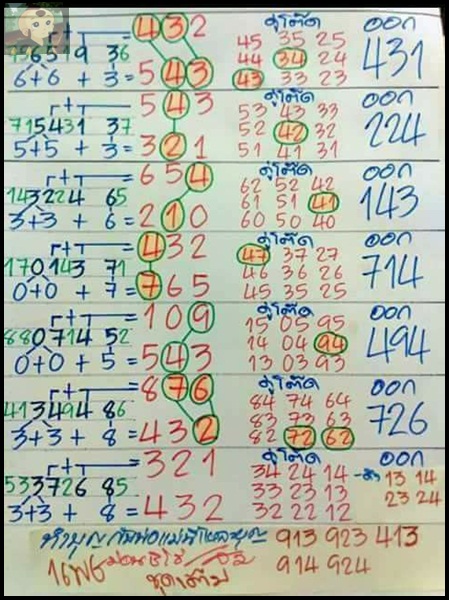 432 คู่โต๊ด ออก
45 35 25
756519 36 44 34 24 431
6+6 + 3 = 543 43 33 23
r+T = 543 คู่โต๊ด ออก
53 43 33
715431 37 52 42 32 224
5+5 + 3 = 321 51 41 31
r+T = 654 คู่โต๊ด ออก
62 52 42
143224 65 61 51 41 143
3+3 + 6 = 210 60 50 40
r+T = 432 คู่โต๊ด ออก
47 37 27
170143 71 46 36 26 714
0+0 + 7 = 765 45 35 25
r+T = 109 คู่โต๊ด ออก
15 05 95
880714 52 14 04 94 494
0+0 + 5 = 543 13 03 93
r+T = 876 คู่โต๊ด ออก
84 74 64
413494 86 83 73 63 726
3+3 + 8 = 432 82 72 62
r+T = 321 คู่โต๊ด ออก
34 24 14 13 14
533726 85 33 23 13 23 24
3+3 + 8 = 432 32 22 12
ทำบุญ 913 923 413
914 924